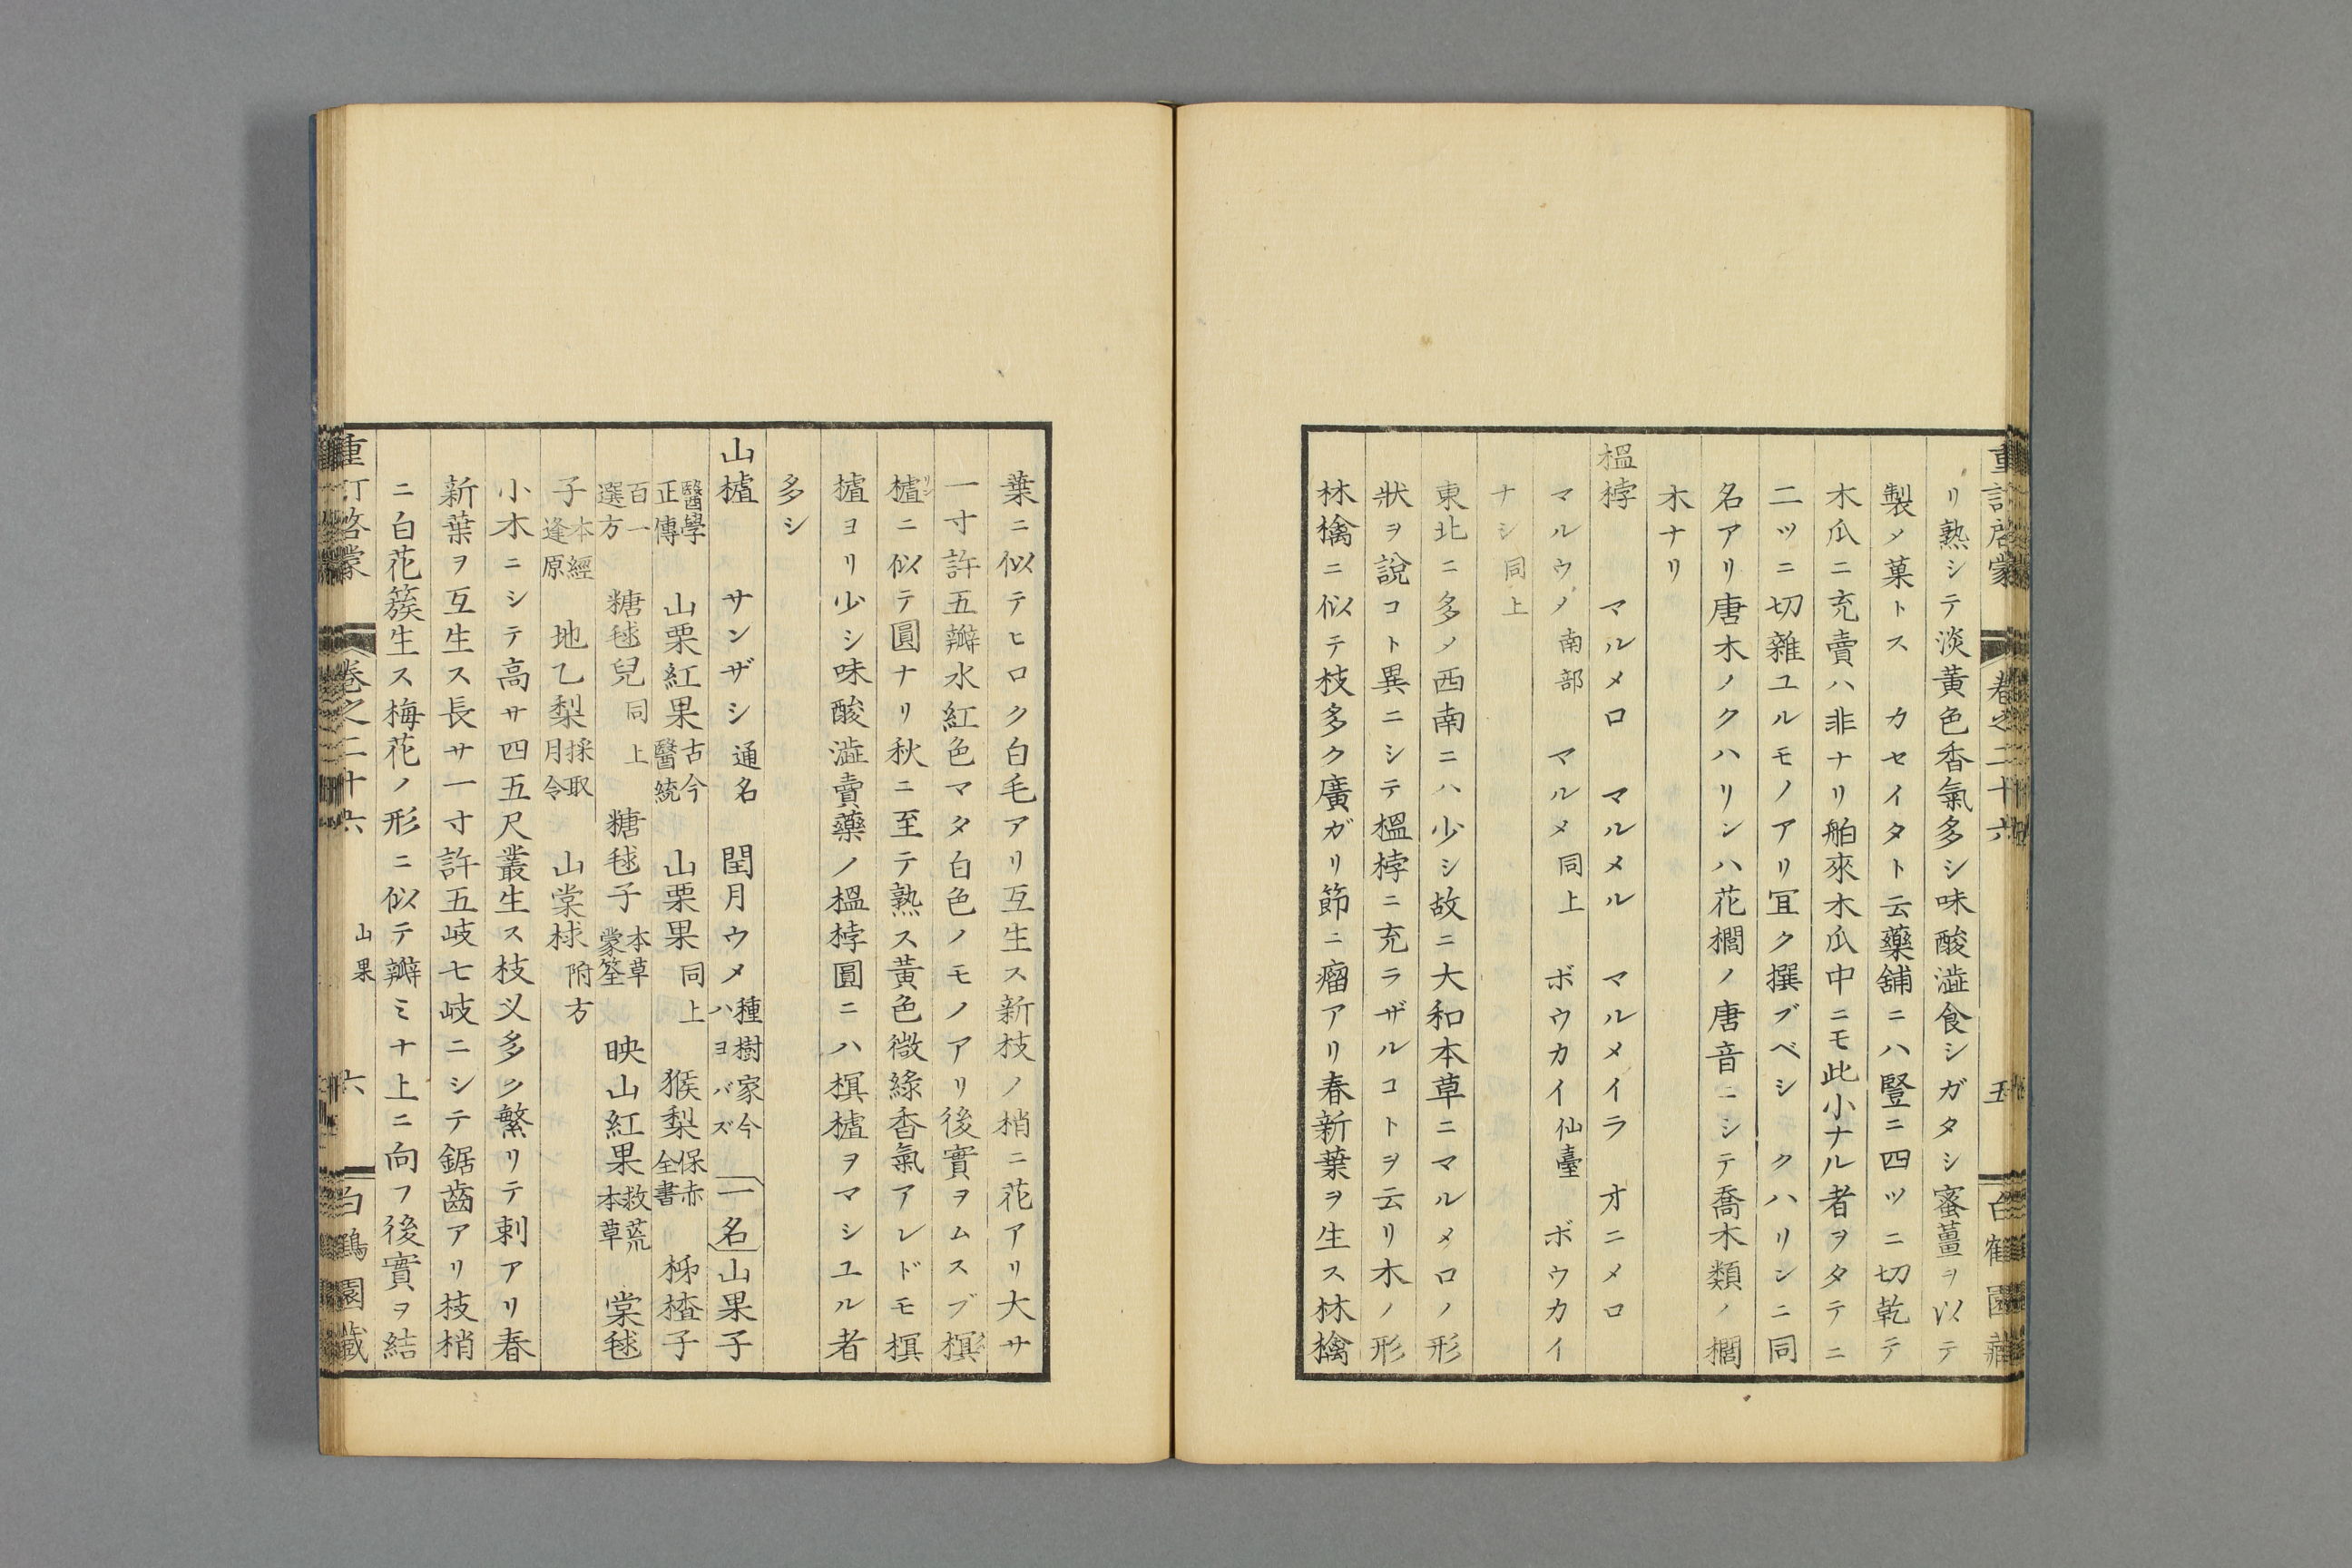 重訂啓蒙 卷之二十六 五 白鶴園藏
リ熟シテ淡黃色香氣多シ味酸澁食シガタシ蜜薑ヲ以テ
製メ菓トス カセイタト云藥舖ニハ豎ニ四ツニ切乾テ
木瓜ニ充賣ハ非ナリ舶來木瓜中ニモ此小ナル者ヲタテニ
二ツニ切雜ユルモノアリ冝ク撰ブベシ クハリンニ同
名アリ唐木ノクハリンハ花櫚ノ唐音ニシテ喬木類ノ櫚
木ナリ
榲桲 マルメロ マルメル マルメイラ オニメロ
マルウメ南部 マルメ同上 ボウカイ仙臺 ボウカイ
ナシ同上
東北ニ多メ西南ニハ少シ故ニ大和本草ニマルメロノ形
狀ヲ說コト異ニシテ榲桲ニ充ラザルコトヲ云リ木ノ形
林檎ニ似テ枝多ク廣ガリ節ニ瘤アリ春新葉ヲ生ス林檎
葉ニ似テヒロク白毛アリ互生ス新枝ノ梢ニ花アリ大サ
一寸許五瓣水紅色マタ白色ノモノアリ後實ヲムスブ榠
樝ニ似テ圓ナリ秋ニ至テ熟ス黃色微綠香氣アレドモ榠
樝ヨリ少シ味酸澁賣藥ノ榲桲圓ニハ榠樝ヲマシユル者
多シ
山樝 サンザシ通名 閏月ウメ種樹家今ハヨバズ 一名山果子
醫學正傳 山栗紅果古今醫統 山栗果同上 猴梨保赤全書 柹楂子
百一選方 糖毬兒同上 糖毬子本草蒙筌 映山紅果救荒本草 棠毬
子本經逢原 地乙梨採取月令 山棠梂附方
小木ニシテ高サ四五尺叢生ス枝乂多ク繁リテ刺アリ春
新葉ヲ互生ス長サ一寸許五岐七岐ニシテ鋸齒アリ枝梢
ニ白花簇生ス梅花ノ形ニ似テ瓣ミナ上ニ向フ後實ヲ結
重訂啓蒙 卷之二十六 山果 六 白鶴園藏